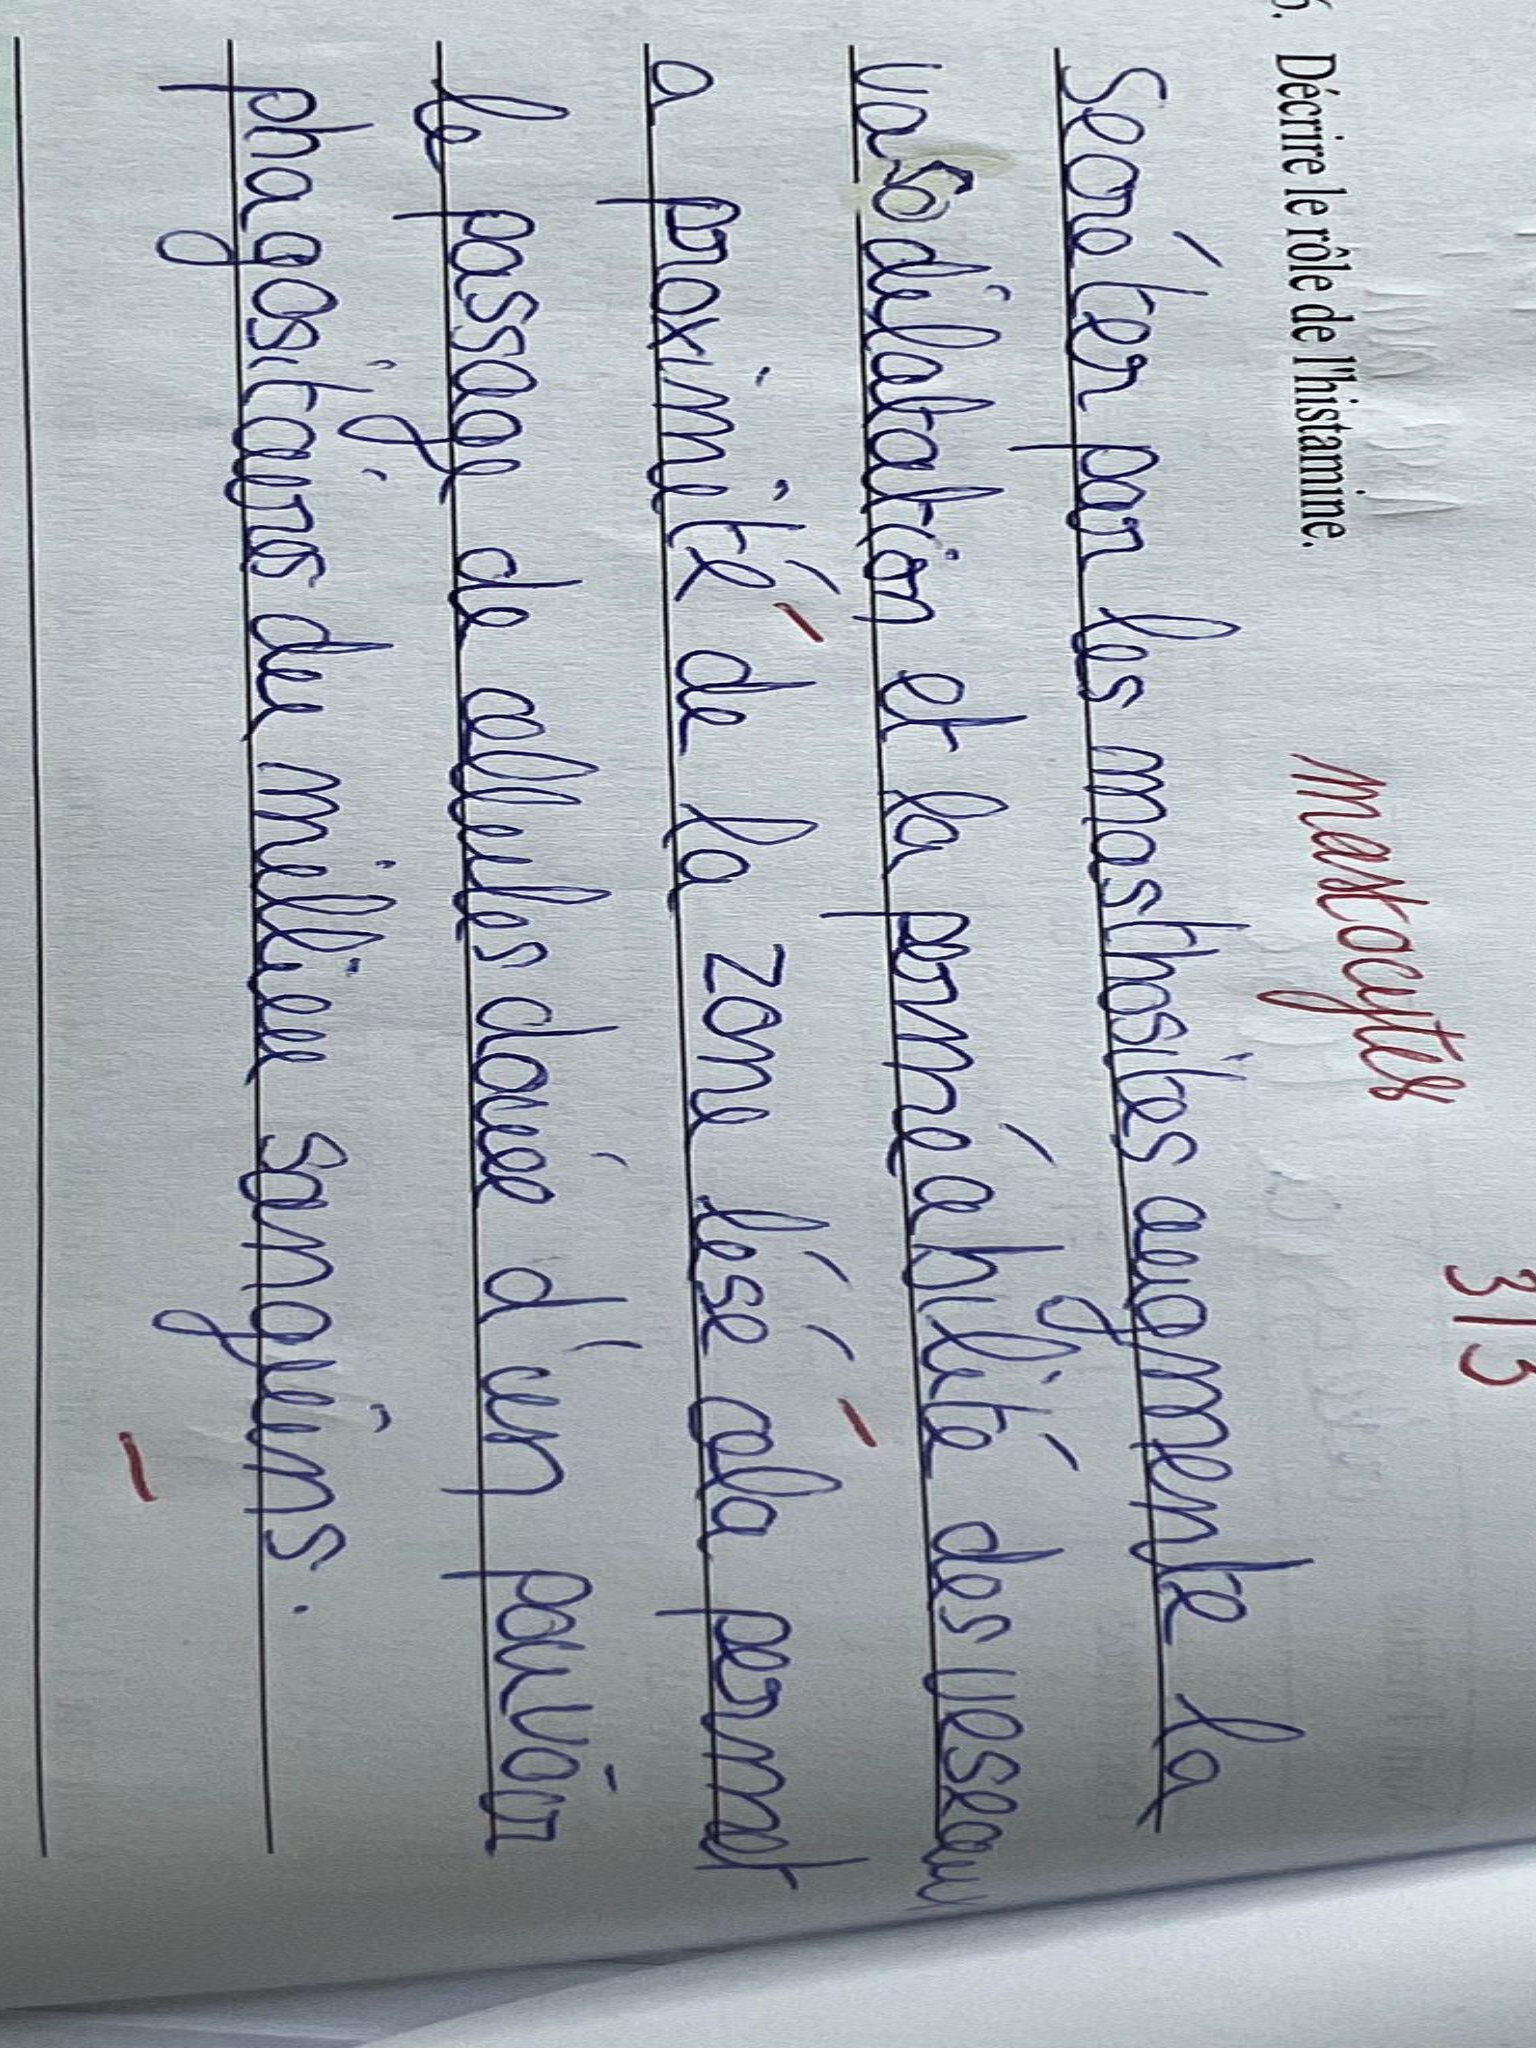 3/3
6. Décrire le rôle de l'histamine.
mastocytes
Secréter par les masthosites augmente la
vasodilatation et la perméabilité des veseau
a proximité de la zone lésé cela permet
le passage de cellules douée d'un pouvoir
phagositaire du millieu sanguins.